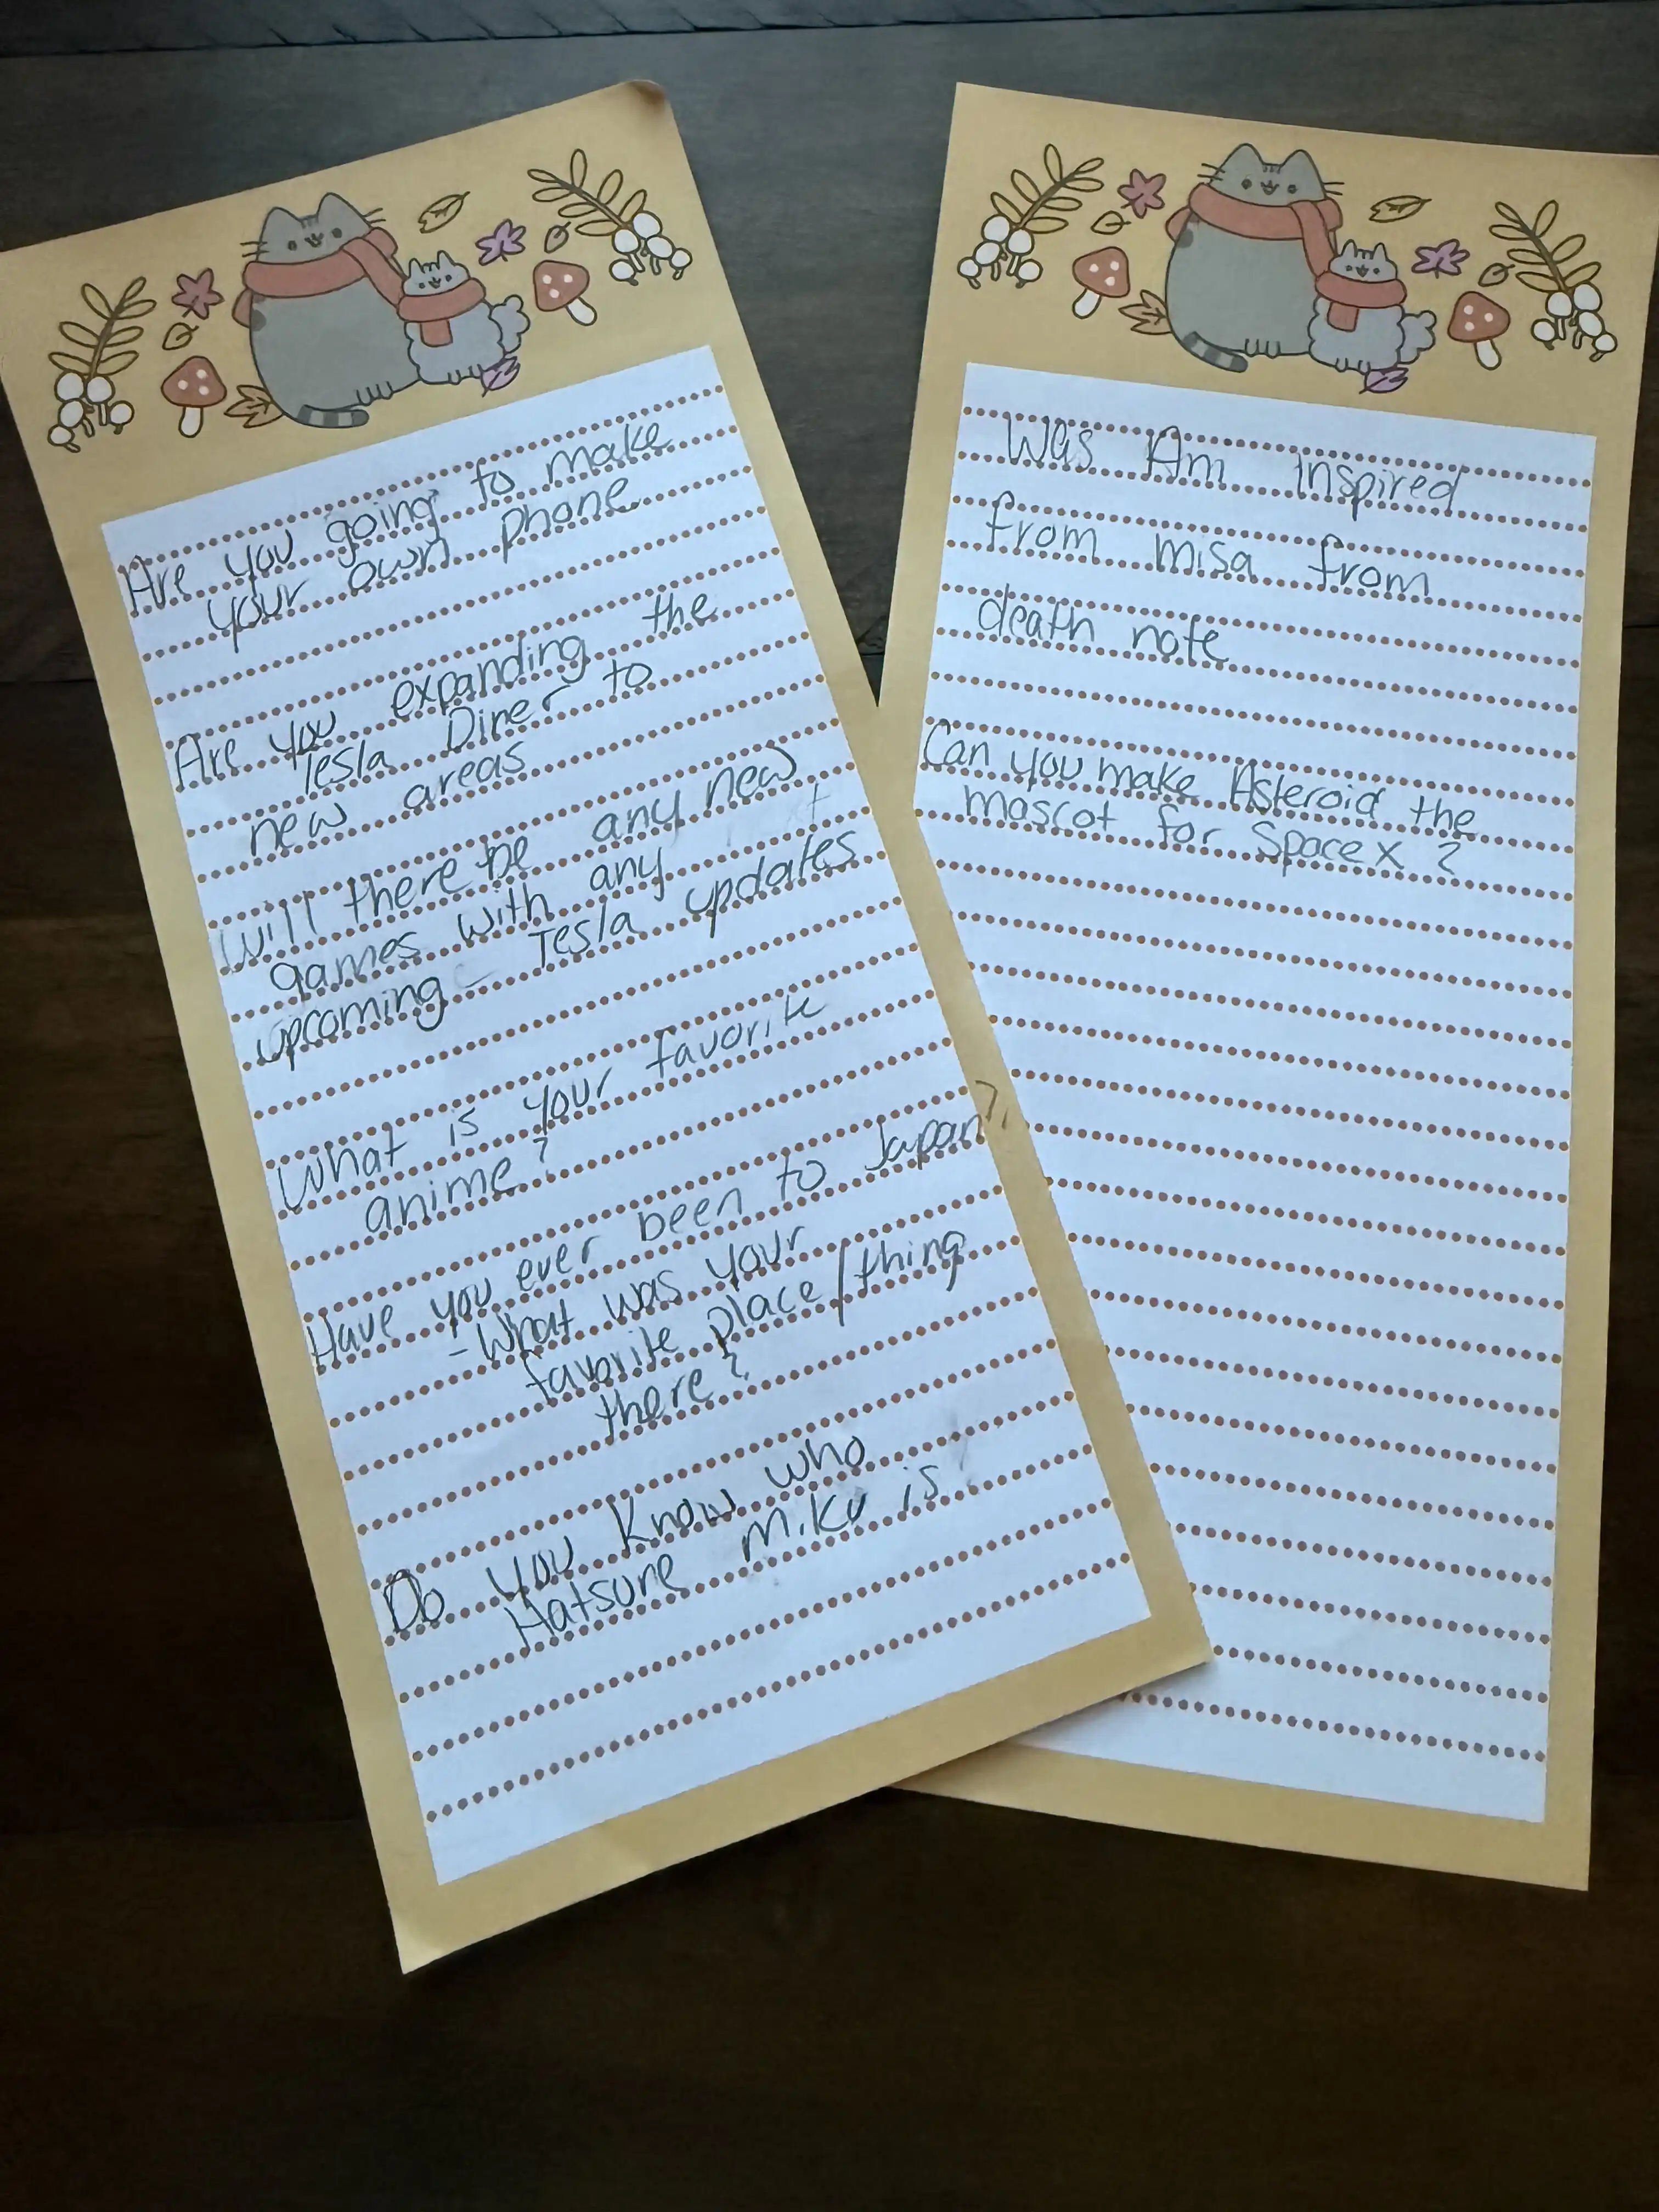 Are you going to make
your own phone
Are you expanding the
Tesla Diner to
new areas
Will there be any new
games with any
upcoming Tesla updates
What is your favorite
anime?
Have you ever been to Japan?
- What was your
favorite place/thing
there?
Do you know who
Hatsune Miku is
Was Am Inspired
from misa from
death note
Can you make Asteroid the
mascot for Space X ?